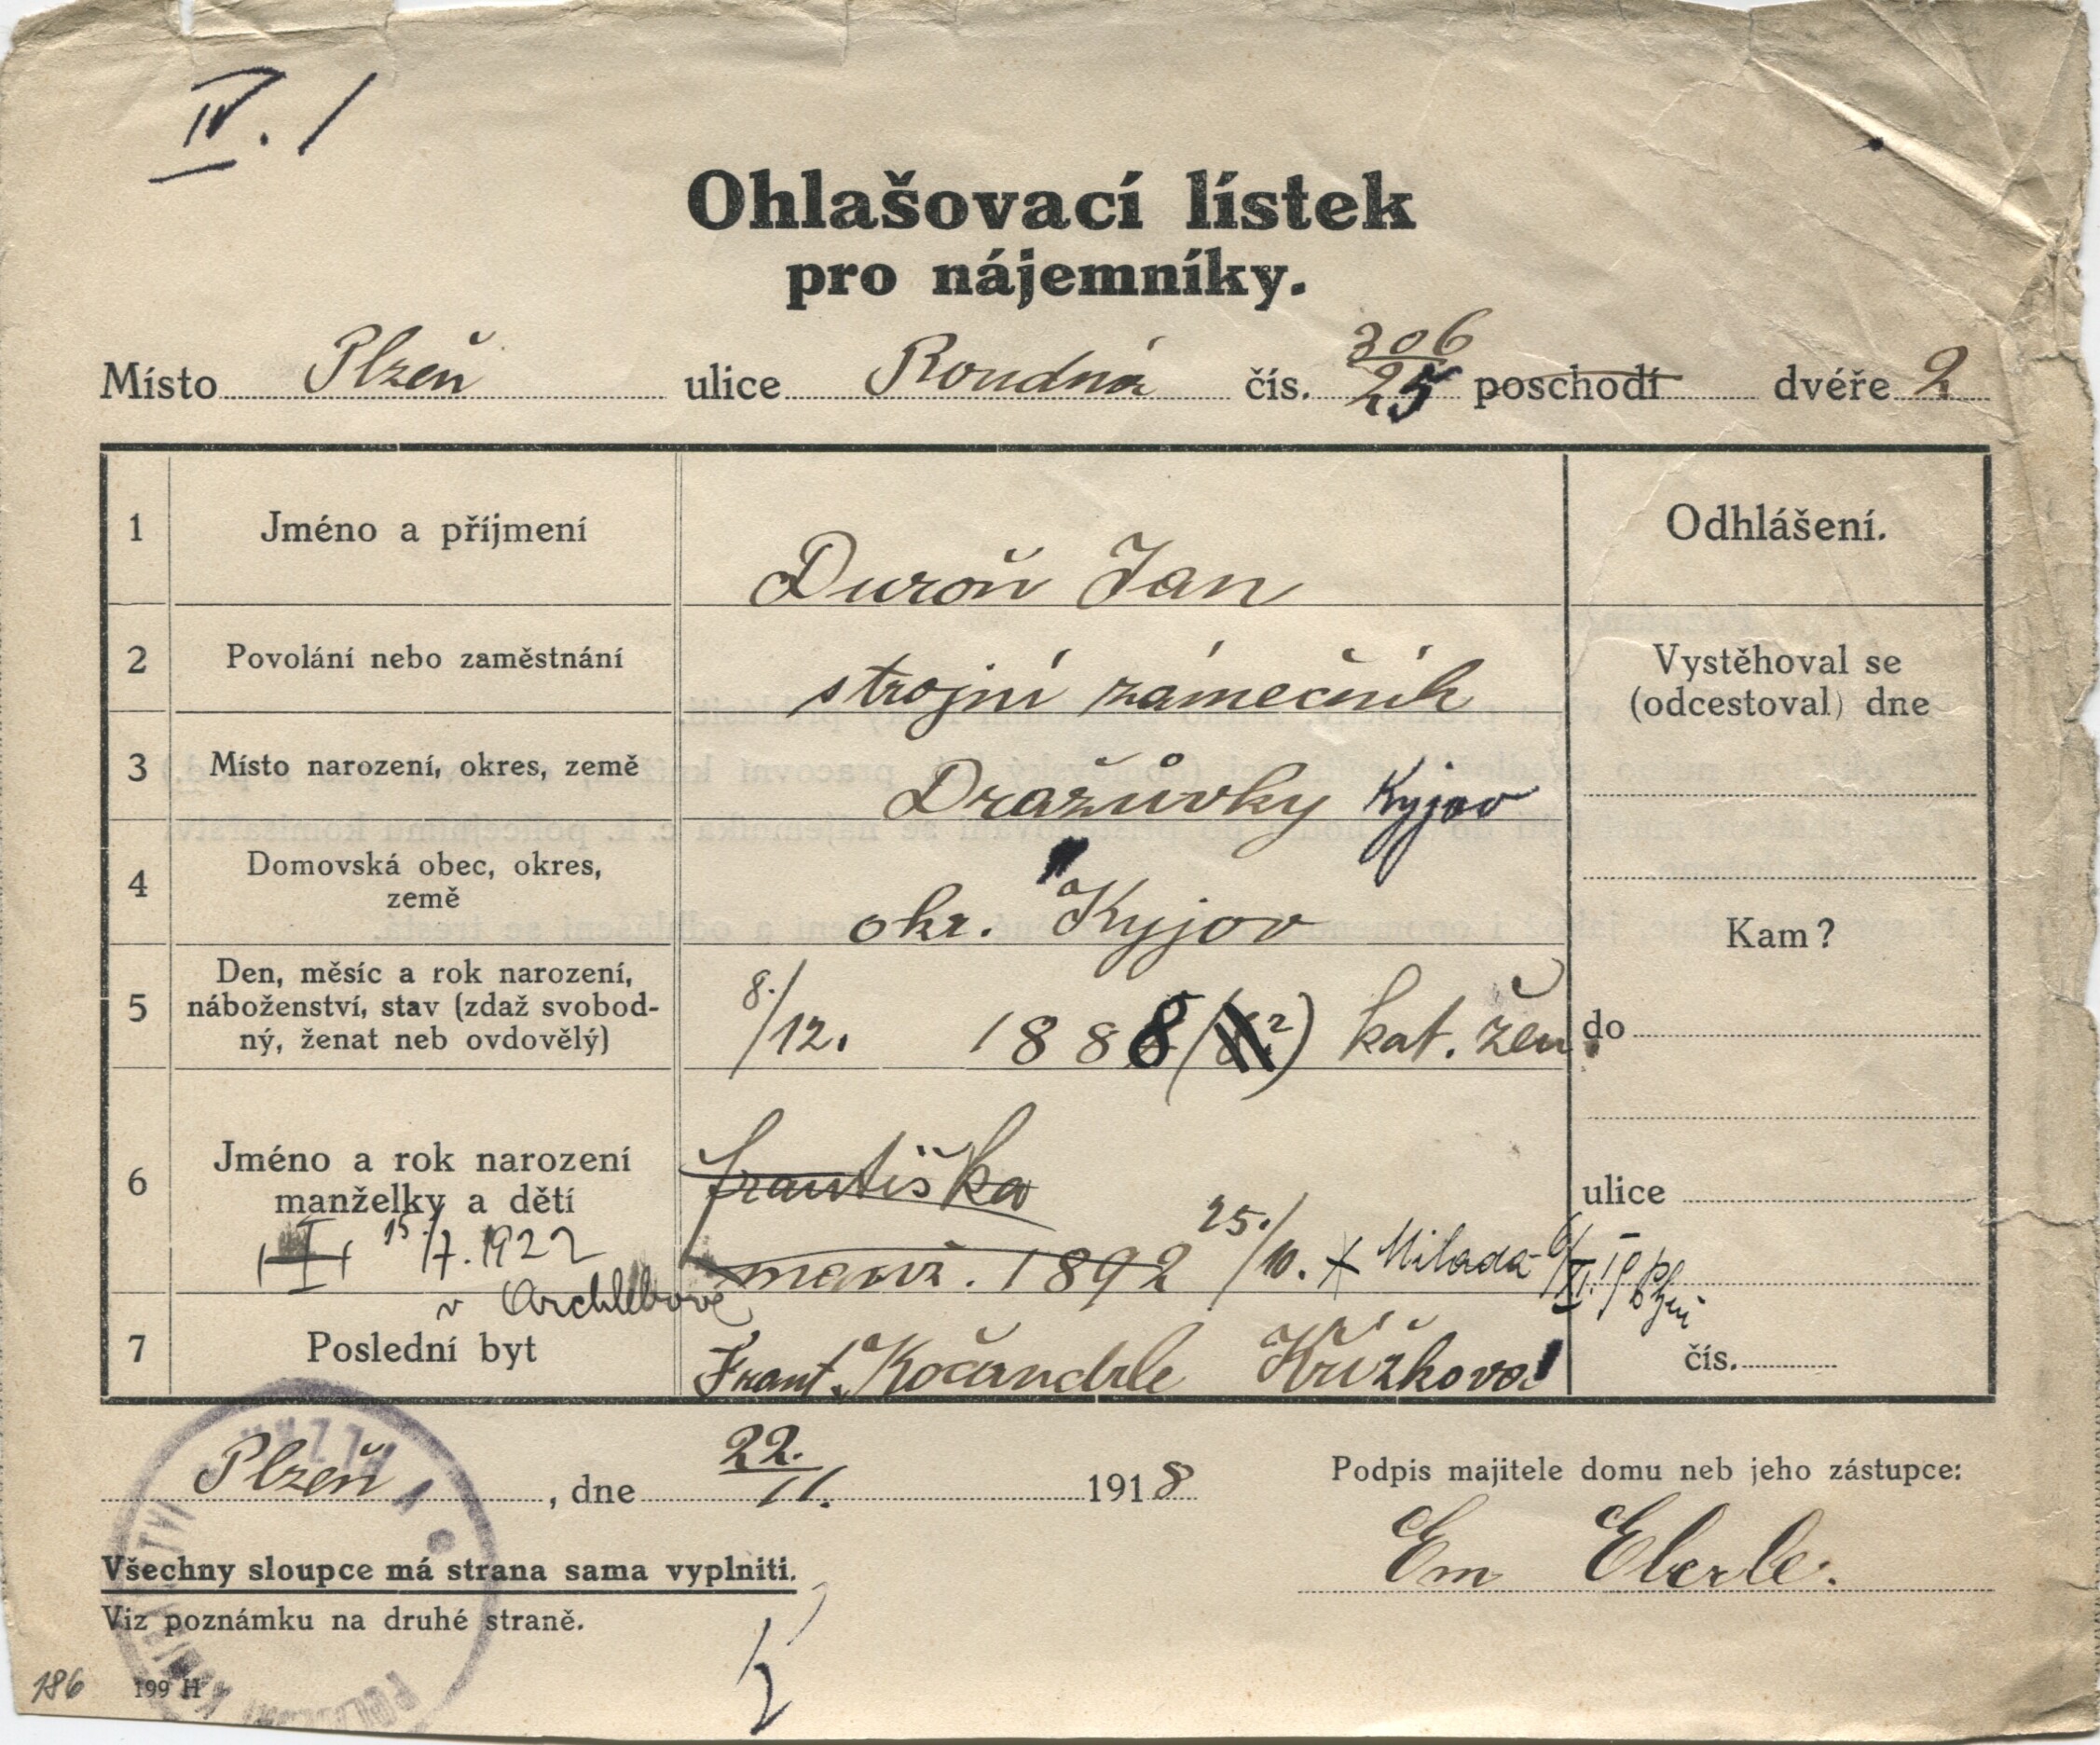 IV. 1
Ohlašovací lístek
pro nájemníky.
306
Místo Plzeň ulice Roudná čís. 25 poschodí dvéře 2
1 Jméno a příjmení Duroň Jan Odhlášení.
2 Povolání nebo zaměstnání strojní zámečník Vystěhoval se
(odcestoval) dne
3 Místo narození, okres, země Dražůvky Kyjov
4 Domovská obec, okres,
země okr. Kyjov Kam?
5 Den, měsíc a rok narození,
náboženství, stav (zdaž svobod-
ný, ženat neb ovdovělý) 8./12. 1888 kat. žen. do
6 Jméno a rok narození
manželky a dětí Františka ulice
15/7. 1922 1892 25./10. x Milada 6/XI.
v Archlebově
7 Poslední byt Frant. Kočandrle Křížkova čís.
Plzeň, dne 22./11. 1918
Podpis majitele domu neb jeho zástupce:
Em Eberle.
Všechny sloupce má strana sama vyplniti.
Viz poznámku na druhé straně.
186 199 H